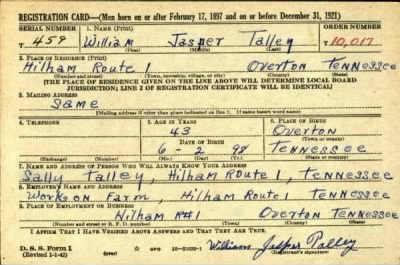 REGISTRATION CARD—(Men born on or after February 17, 1897 and on or before December 31, 1921)
SERIAL NUMBER 1. NAME (Print) ORDER NUMBER
459 William Jasper Talley 10,017
(First) (Middle) (Last)
2. PLACE OF RESIDENCE (Print)
Hilham Route 1 Overton Tennessee
(Number and street) (Town, township, village, or city) (County) (State)
[THE PLACE OF RESIDENCE GIVEN ON THE LINE ABOVE WILL DETERMINE LOCAL BOARD
JURISDICTION; LINE 2 OF REGISTRATION CERTIFICATE WILL BE IDENTICAL]
3. MAILING ADDRESS
Same
[Mailing address if other than place indicated on line 2. If same insert word same]
4. TELEPHONE 5. AGE IN YEARS 6. PLACE OF BIRTH
43 Overton
DATE OF BIRTH (Town or county)
6 - 2 98 Tennessee
(Exchange) (Number) (Mo.) (Day) (Yr.) (State or country)
7. NAME AND ADDRESS OF PERSON WHO WILL ALWAYS KNOW YOUR ADDRESS
Sally Talley, Hilham Route 1, Tennessee
8. EMPLOYER'S NAME AND ADDRESS
Works on Farm, Hilham Route 1 Tennessee
9. PLACE OF EMPLOYMENT OR BUSINESS
Hilham R#1 Overton Tennessee
(Number and street or R. F. D. number) (Town) (County) (State)
I AFFIRM THAT I HAVE VERIFIED ABOVE ANSWERS AND THAT THEY ARE TRUE.
D. S. S. Form 1
(Revised 1-1-42) GPO William Jasper Talley
(Registrant's signature)